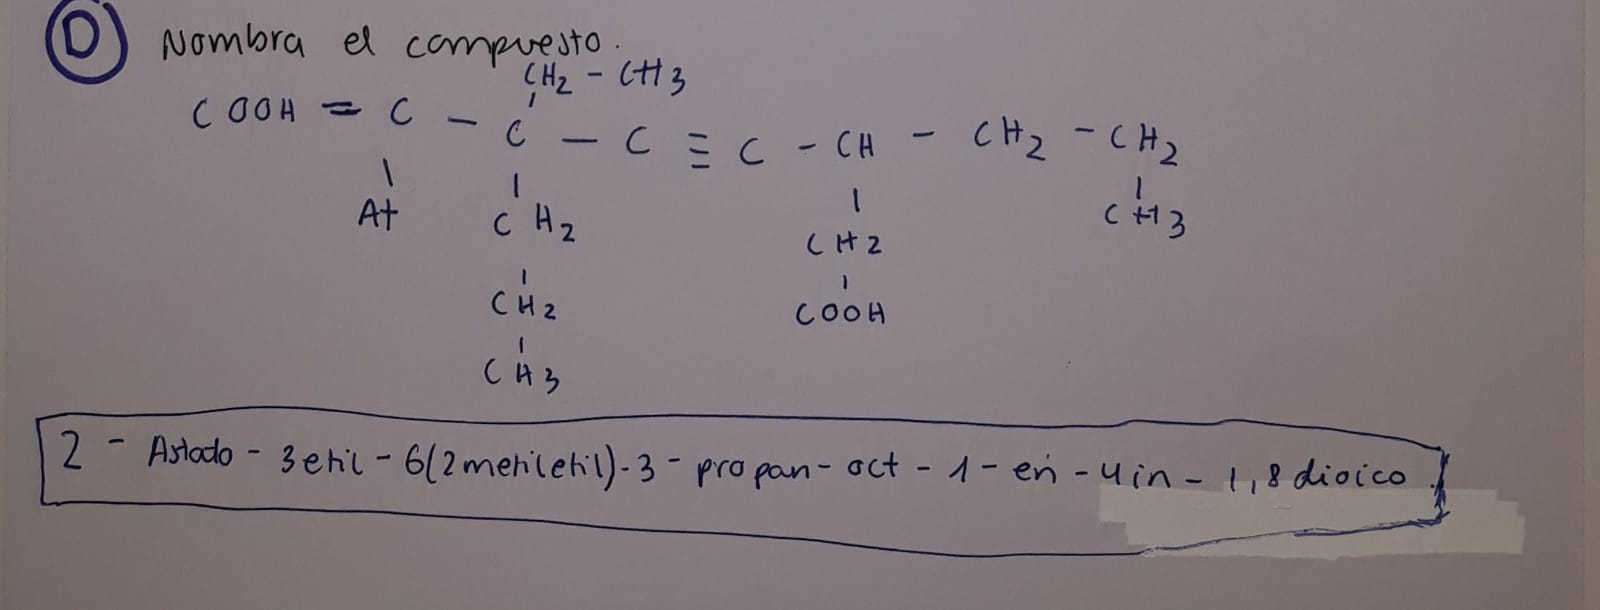 D Nombra el compuesto.
CH2 - CH3
COOH = C - C - C ≡ C - CH - CH2 - CH2
At CH2 CH2 CH3
CH2 COOH
CH3
2 - Astado - 3 etil - 6(2 metiletil) - 3 - propan - oct - 1 - en - 4 in - 1,8 dioico.